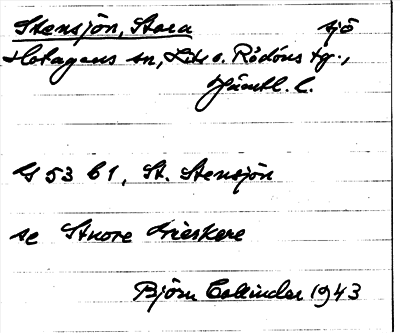 Stensjön, Stora sjö
Hotagens sn, Lits o. Rödöns tg.,
Jämtl. l.
G 53 b1, St. Stensjön
se Stuore Kieskere
Björn Collinder 1943